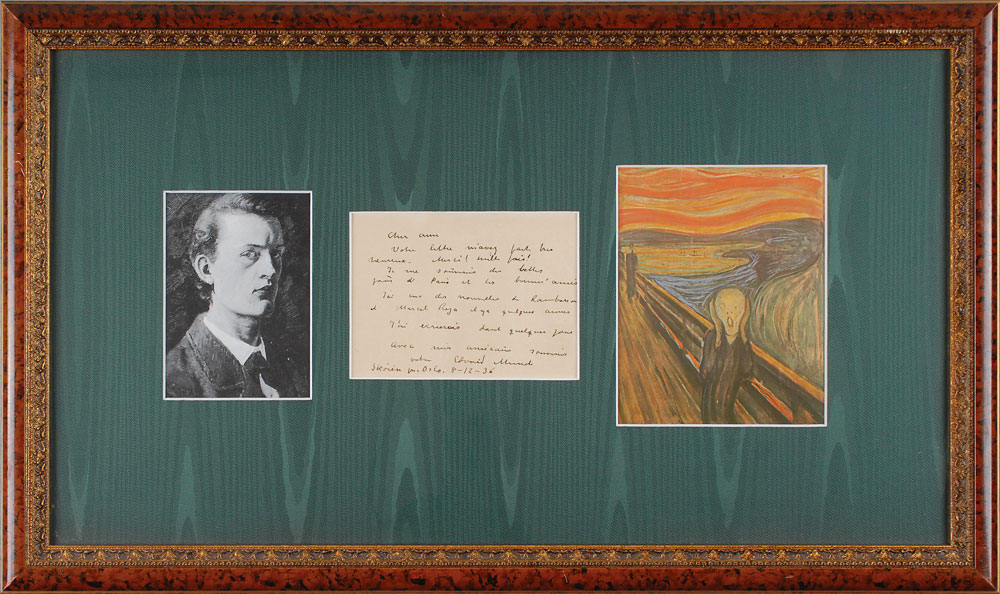 Cher ami
Votre lettre m'avez fait bien
heureux. Merci! mille fois!
Je me souvenis des belles
jours à Paris et les bonnes amis
J'ai eus des nouvelles de Rambosson
et Marcel il ya quelques annes
J'ecrierais dans quelques jours
Avec mes souvenirs
votre Edvard Munch
Skøien pr. Oslo. 8-12-36